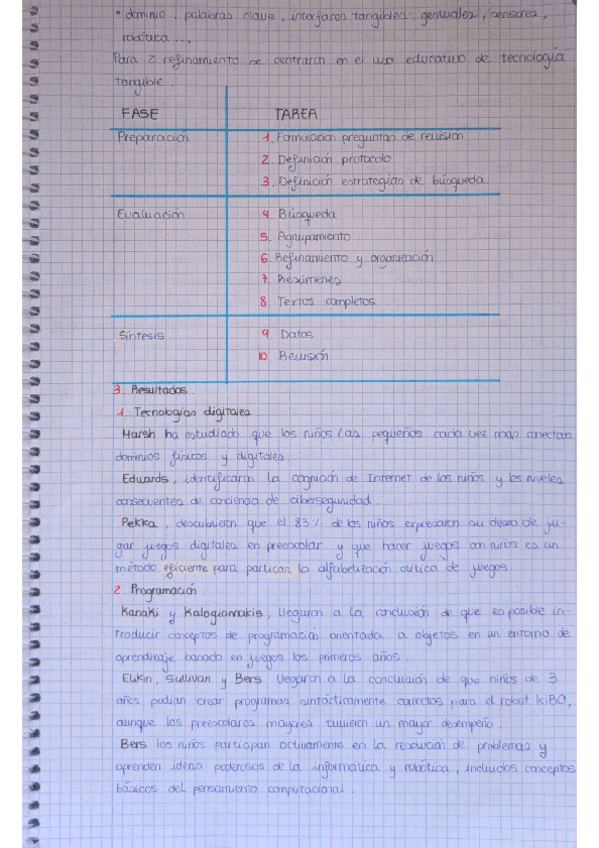 • dominio : palabras clave , interfaces tangibles , gestuales , sensores ,
robótica ...
Para 2 refinamiento se centraron en el uso educativo de tecnología
tangible .
FASE TAREA
Preparación 1. Formulación preguntas de revisión
2. Definición protocolo
3. Definición estrategias de búsqueda
Evaluación 4. Búsqueda
5. Agrupamiento
6. Refinamiento y organización
7. Resúmenes
8. Textos completos
Síntesis 9. Datos
10. Revisión
3. Resultados .
1. Tecnologías digitales .
Marsh ha estudiado que los niños / as pequeños cada vez más conectan
dominios físicos y digitales .
Eduards , identificaron la cognición de Internet de los niños y los niveles
consecuentes de conciencia de ciberseguridad .
Pekka , descubrieron que el 83% de los niños expresaron su deseo de ju-
gar juegos digitales en preescolar y que hacer juegos con niños es un
método eficiente para practicar la alfabetización crítica de juegos .
2. Programación
Kanaki y Kalogiannakis , llegaron a la conclusión de que es posible in-
troducir conceptos de programación orientada a objetos en un entorno de
aprendizaje basado en juegos los primeros años .
Elkin , Sullivan y Bers llegaron a la conclusión de que niños de 3
años podían crear programas sintácticamente correctos para el robot KIBO,
aunque los preescolares mayores tuvieron un mayor desempeño .
Bers los niños participan activamente en la resolución de problemas y
aprenden ideas poderosas de la informática y robótica , incluidos conceptos
básicos del pensamiento computacional .